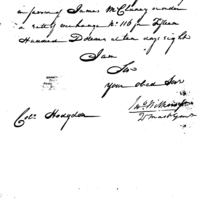 in favor of James McCluney under
a sett of exchange No. 116 for fifteen
Hundred Dollars at ten days sight
I am
Sir
your obed Serv
Colo. Hodgdon